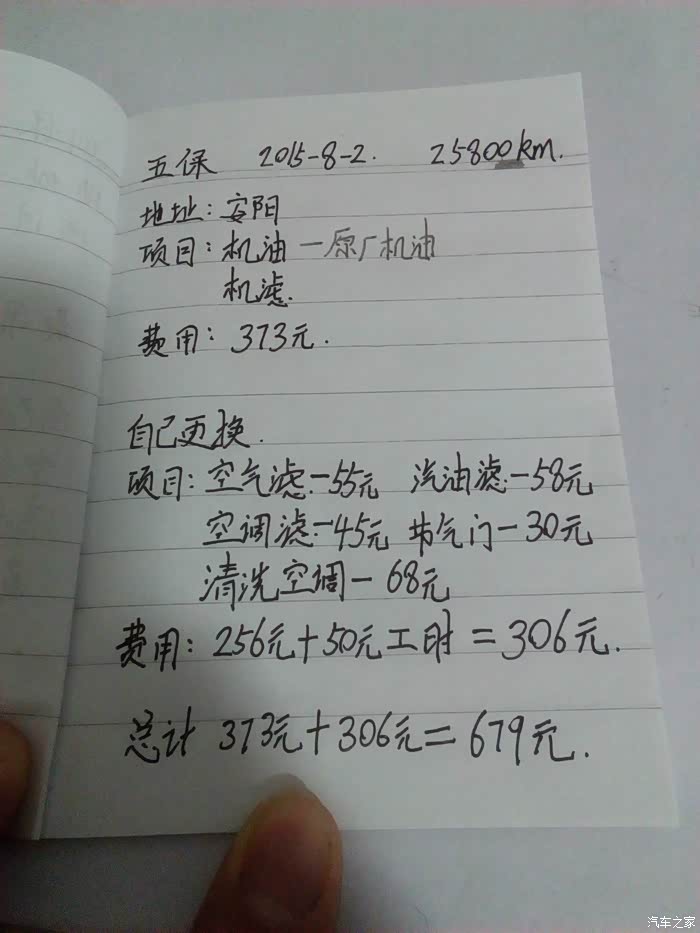 五保 2015-8-2. 25800km.
地址：安阳
项目：机油—原厂机油
机滤.
费用：373元.
自己更换.
项目：空气滤-55元 汽油滤-58元
空调滤-45元 节气门-30元
清洗空调-68元
费用：256元+50元工时=306元.
总计 373元+306元=679元.
汽车之家